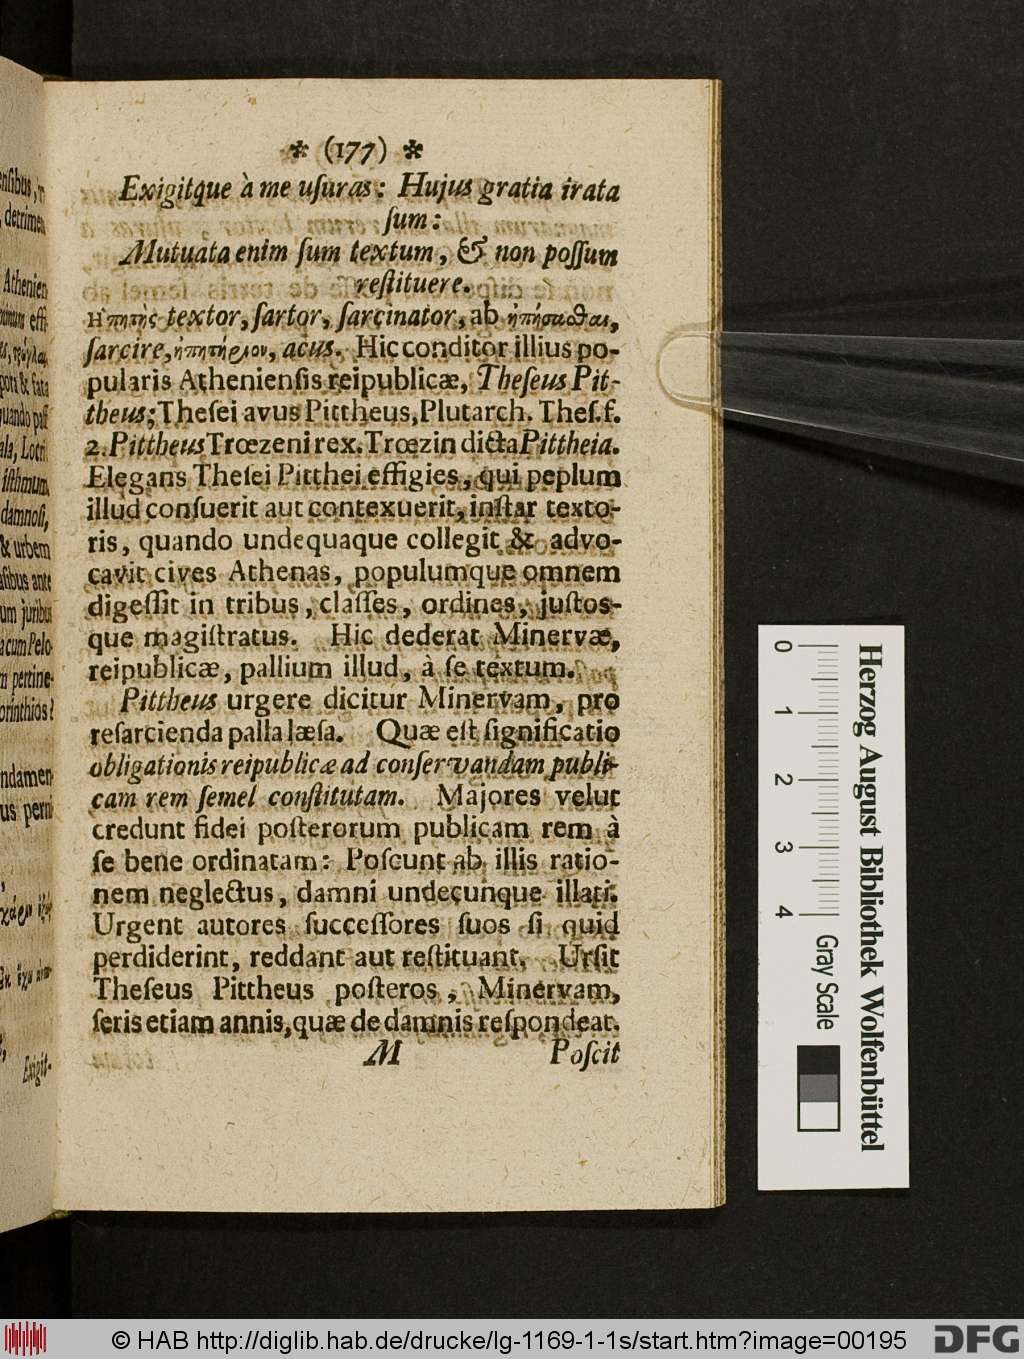 * (177) *
Exigitque à me uſuras: Hujus gratia irata
ſum:
Mutuata enim ſum textum, & non poſſum
reſtituere.
Ηπητὴς textor, ſartor, ſarcinator, ab ἠπήσασθαι,
ſarcire, ἠπητήριον, acus. Hic conditor illius po-
pularis Athenienſis reipublicæ, Theſeus Pit-
theus; Theſei avus Pittheus, Plutarch. Theſ. f.
2. Pittheus Trœzeni rex. Trœzin dicta Pittheia.
Elegans Theſei Pitthei effigies, qui peplum
illud conſuerit aut contexuerit, inſtar texto-
ris, quando undequaque collegit & advo-
cavit cives Athenas, populumque omnem
digeſſit in tribus, claſſes, ordines, juſtos-
que magiſtratus. Hic dederat Minervæ,
reipublicæ, pallium illud, à ſe textum.
Pittheus urgere dicitur Minervam, pro
reſarcienda palla læſa. Quæ eſt ſignificatio
obligationis reipublicæ ad conſervandam publi-
cam rem ſemel conſtitutam. Majores velut
credunt fidei poſterorum publicam rem à
ſe bene ordinatam: Poſcunt ab illis ratio-
nem neglectus, damni undecunque illati.
Urgent autores ſucceſſores ſuos ſi quid
perdiderint, reddant aut reſtituant. Urſit
Theſeus Pittheus poſteros, Minervam,
ſeris etiam annis, quæ de damnis reſpondeat.
M Poſcit
enſibus,
detrimen
Athenien
effi-
& fata
quando
Locri
iſthmum,
damnoſi,
& urbem
ante
um juribus
acum Pelo-
pertine-
orinthios?
ndamen-
us perni
Exigit-
0 1 2 3 4
Gray Scale
Herzog August Bibliothek Wolfenbüttel
© HAB http://diglib.hab.de/drucke/lg-1169-1-1s/start.htm?image=00195
DFG